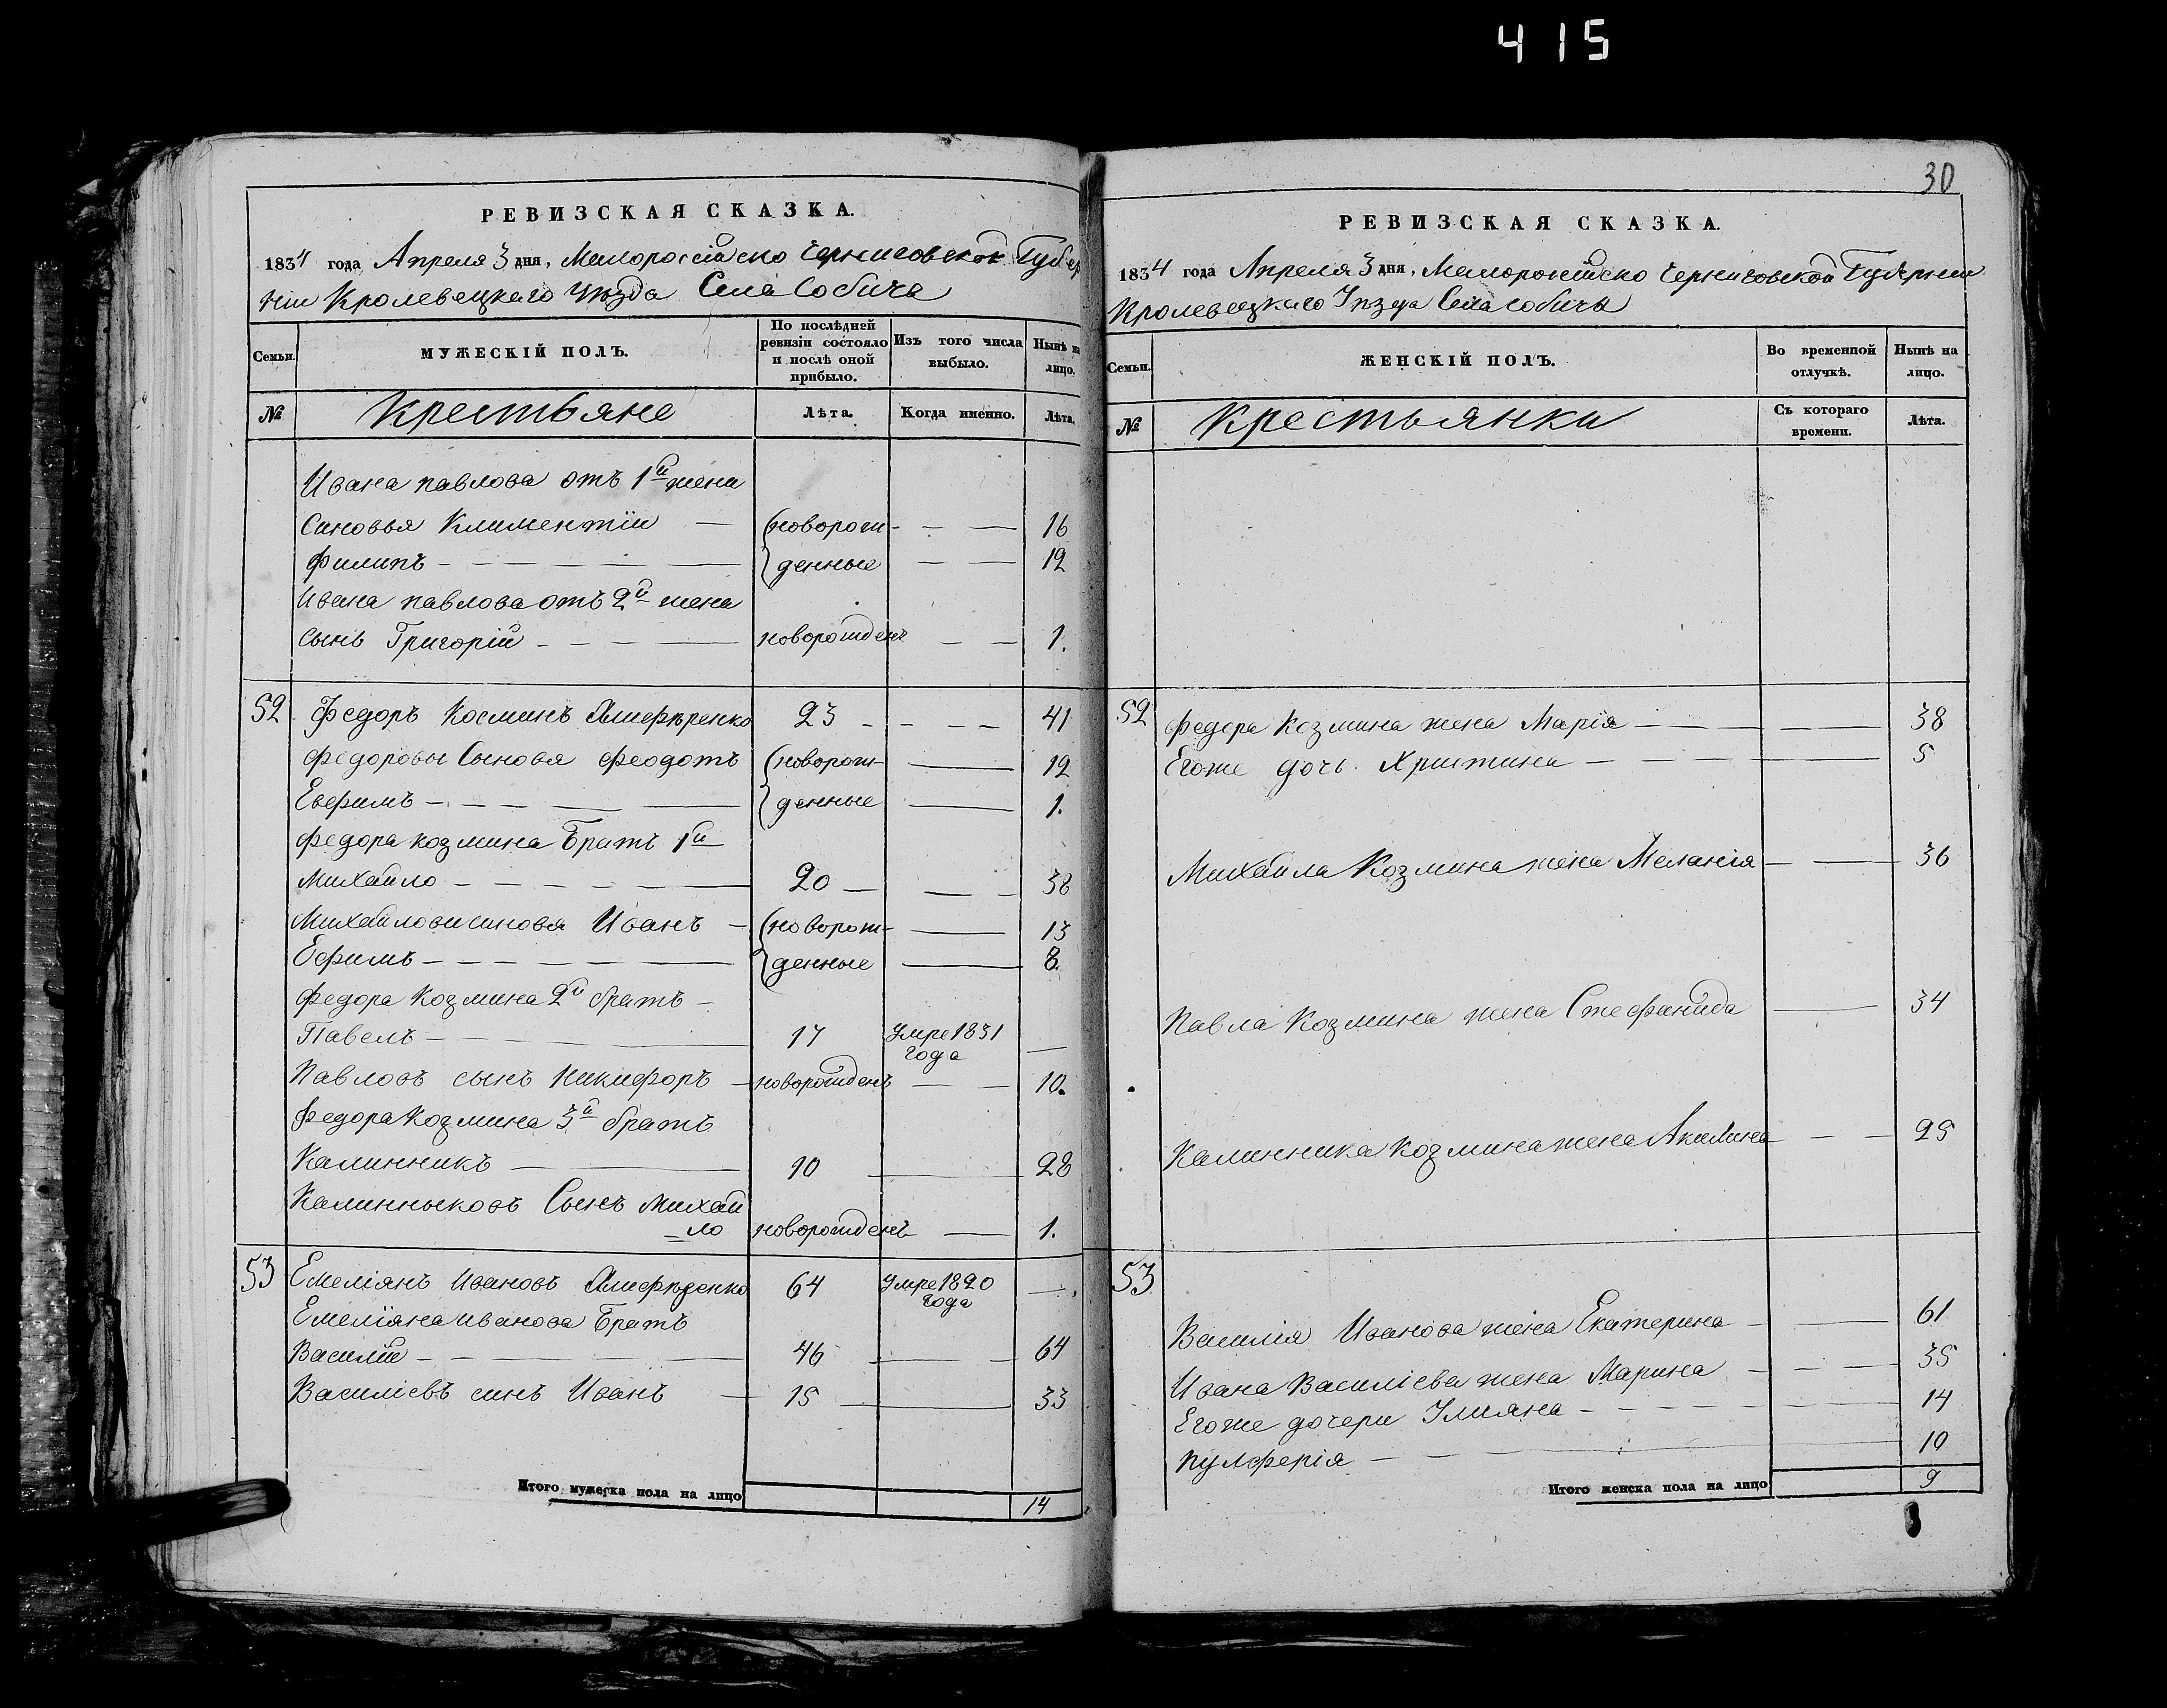 415
РЕВИЗСКАЯ СКАЗКА.
1834 года Апреля 3 дня, Малоросійско Черниговской Губер
ніи Кролевецкаго Уѣзда Села Собича
Семьи. МУЖЕСКІЙ ПОЛЪ. По послѣдней ревизіи состояло и послѣ оной прибыло. Изъ того числа выбыло. Нынѣ на лицо.
№ Крестьяне Лѣта. Когда именно. Лѣта.
Ивана павлова отъ 1й жени
Синовья Климентіи (новорож- 16
Филипъ денные 12
Ивана павлова отъ 2й жена
сынъ Григорій новорожденъ 1.
52 Федоръ Косминъ 23 41
Федоровы Сыновя Феодотъ (новорож- 12
Евфимъ денные 1.
Федора козмина Братъ 1й
Михайло 20 38
Михайлови синовя Иванъ (новорож- 13
Ефимъ денные 8.
Федора Козмина 2й братъ
Павелъ 17 Умре 1831 года
Павловъ сынъ Никифоръ новорожденъ 10.
Федора Козмина 3й братъ
Калинникъ 10 28
Калинныковъ Сынъ Михай
=ло новорожденъ 1.
53 Емеліянъ Ивановъ 64 Умре 1820 года
Емеліяна иванова Братъ
Василій 46 64
Василіевъ синъ Иванъ 15 33
Итого мужеска пола на лицо 14
30
РЕВИЗСКАЯ СКАЗКА.
1834 года Апреля 3 дня, Малоросійско Черниговской Губерніи
Кролевецкаго Уѣзда Села Собича
Семьи. ЖЕНСКІЙ ПОЛЪ. Во временной отлучкѣ. Нынѣ на лицо.
№ Крестьянки Съ котораго времени. Лѣта.
52 Федора Козмина жена Марія 38
Егоже дочь Християна 5
Михайла Козмина жена Меланія 36
Павла Козмина жена Стефанида 34
Калинника Козмина жена Акилина 25
53
Василія Иванова жена Екатерина 61
Ивана Василіева жена Марина 35
Егоже дочери Улияна 14
Пулферія 10
Итого женска пола на лицо 9